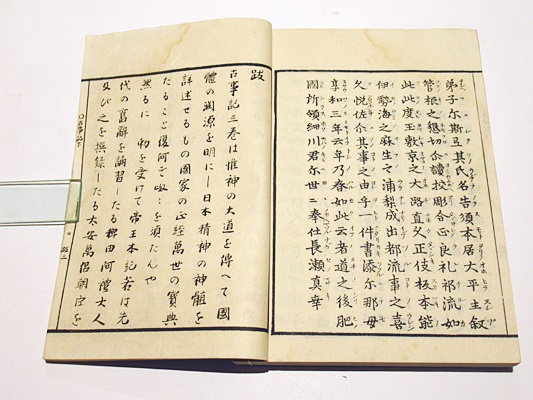 弟子尓斯弖其氏名告須本居大平主叙
管根之懇切介讀校彫合正良礼祁流如
此此度玉敷京之大路直久正伎板本能
伊勢海之麻生之浦梨成出都流事之喜
久悦佐介其事之由乎一件書添尓那毋
享和三年云年乃春如此云者道之後肥
國所領細川君尓世二奉仕長瀬真幸
跋
古事記三巻は惟神の大道を傳へて國
體の淵源を明にし日本精神の神髄を
詳述せるもの國家の正經萬世の寶典
たること復何ぞ呶〻を須たんや
然るに 勅を受けて帝王本記若は先
代の舊辭を誦習したる稗田阿禮大人
及び之を撰録したる太安萬侶朝臣を